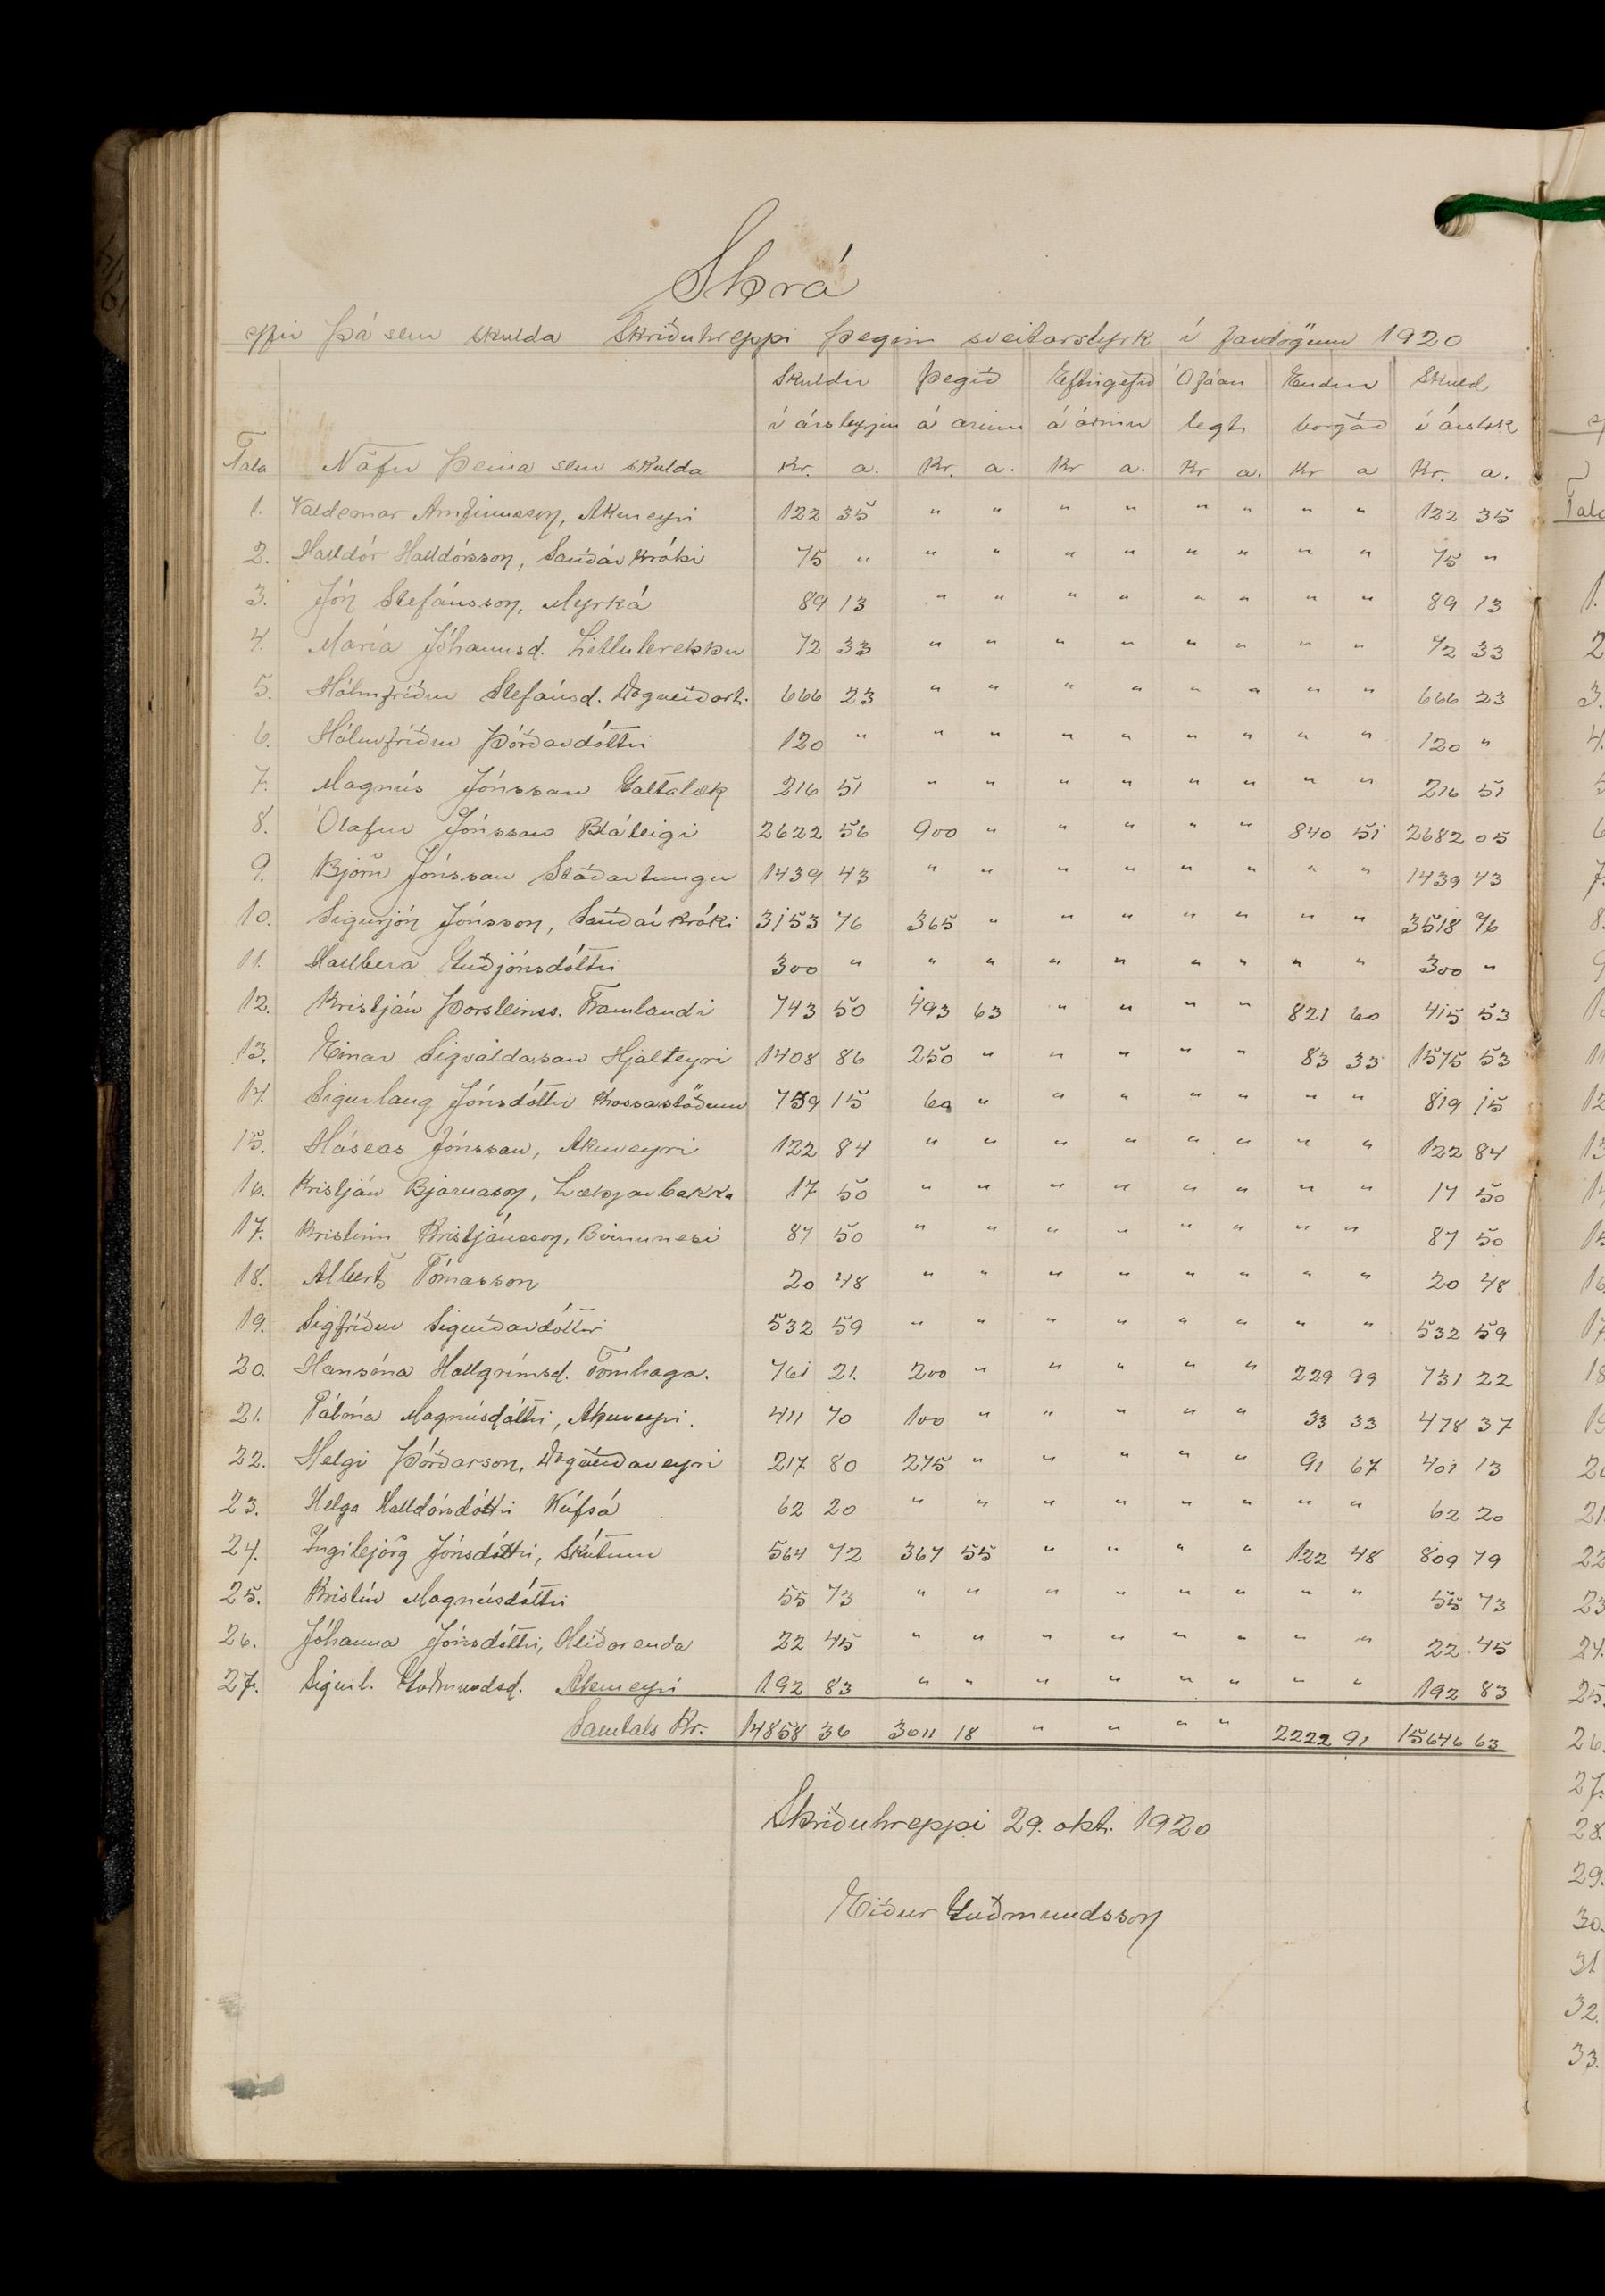 Skrá
yfir þá sem skulda Skriðuhreppi þegin sveitarstyrk í fardögum 1920
Skuldir þegið Eftirgefið Ofáan Endur Skuld
í ársbyrjun á árinu á árinu legt borgað í árslok
Tala Nöfn þeirra sem skulda Kr. a. Kr. a. Kr a. Kr a. Kr a Kr. a.
1. Valdemar Arnfinnsson, Akureyri 122 35 " " " " " " " " 122 35
2. Halldór Halldórsson, Sauðárkróki 75 " " " " " " " " " 75 "
3. Jón Stefánsson, Myrká 89 13 " " " " " " " " 89 13
4. María Jóhannsd. Litlubrekku 72 33 " " " " " " " " 72 33
5. Hólmfríður Stefánsd. 666 23 " " " " " " " " 666 23
6. Hólmfríður Þórðardóttir 120 " " " " " " " " " 120 "
7. Magnús Jónsson Galtalæk 216 51 " " " " " " " " 216 51
8. Ólafur Jónsson Bláteigi 2622 56 900 " " " " " 840 51 2682 05
9. Björn Jónsson Staðartungu 1439 43 " " " " " " " " 1439 43
10. Sigurjón Jónsson, Sauðárkróki 3153 76 365 " " " " " " " 3518 76
11. Hallbera Guðjónsdóttir 300 " " " " " " " " " 300 "
12. Kristján Þorsteinss. Framlandi 743 50 493 63 " " " " 821 60 415 53
13. Einar Sigvaldason Hjalteyri 1408 86 250 " " " " " 83 33 1575 53
14. Sigurlaug Jónsdóttir Fossastöðum 759 15 60 " " " " " " " 819 15
15. Hóseas Jónsson, Akureyri 122 84 " " " " " " " " 122 84
16. Kristján Bjarnason, 17 50 " " " " " " " " 17 50
17. Kristinn Kristjánsson, 87 50 " " " " " " " " 87 50
18. Albert Tómasson 20 48 " " " " " " " " 20 48
19. Sigfríður Sigurðardóttir 532 59 " " " " " " " " 532 59
20. Hansína Hallgrímsd. Fornhaga. 761 21. 200 " " " " " 229 99 731 22
21. Pálína Magnúsdóttir, Akureyri. 411 70 100 " " " " " 33 33 478 37
22. Helgi Þórðarson, Dagverðareyri 217 80 275 " " " " " 91 67 401 13
23. Helga Halldórsdóttir Kúfsá 62 20 " " " " " " " " 62 20
24. Ingibjörg Jónsdóttir, Skútum 564 72 367 55 " " " " 122 48 809 79
25. Kristín Magnúsdóttir 55 73 " " " " " " " " 55 73
26. Jóhanna Jónsdóttir, Heiðarenda 22 45 " " " " " " " " 22 45
27. Sigurl. Guðmundsd. Akureyri 192 83 " " " " " " " " 192 83
Samtals Kr. 14858 36 3011 18 " " " " 2222 91 15646 63
Skriðuhreppi 29. okt. 1920
Eiður Guðmundsson
Tala
1.
2
3.
4.
17
18
21.
22
23
24.
25.
26.
27.
28.
29.
30.
31
32.
33.